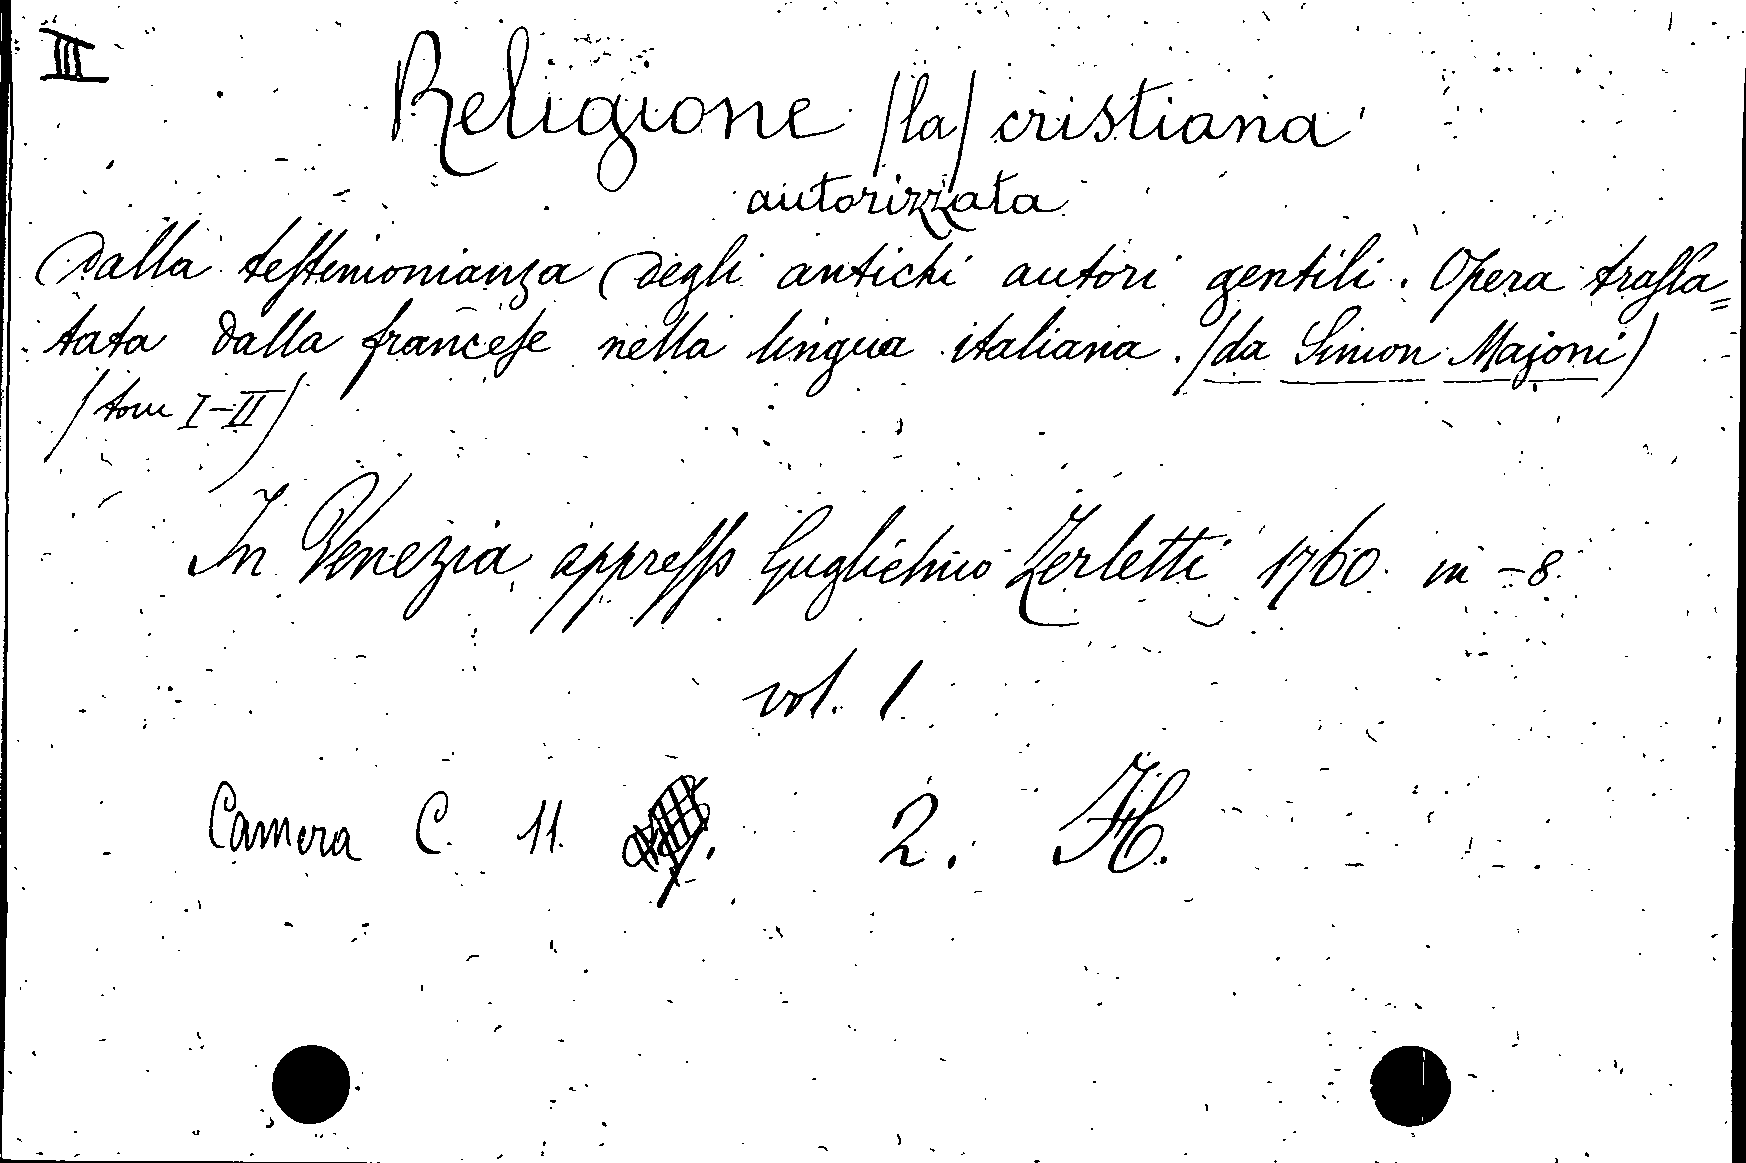 III
Religione /la/ cristiana
autorizzata
dalla testimonianza degli antichi autori gentili. Opera trasla=
tata dalla francese nella lingua italiana. /da Simon Majoni/
/tom I-II/
In Venezia, appresso Guglielmo Zerletti 1760. in -8.
vol. 1.
Camera C. 11. 2. H.